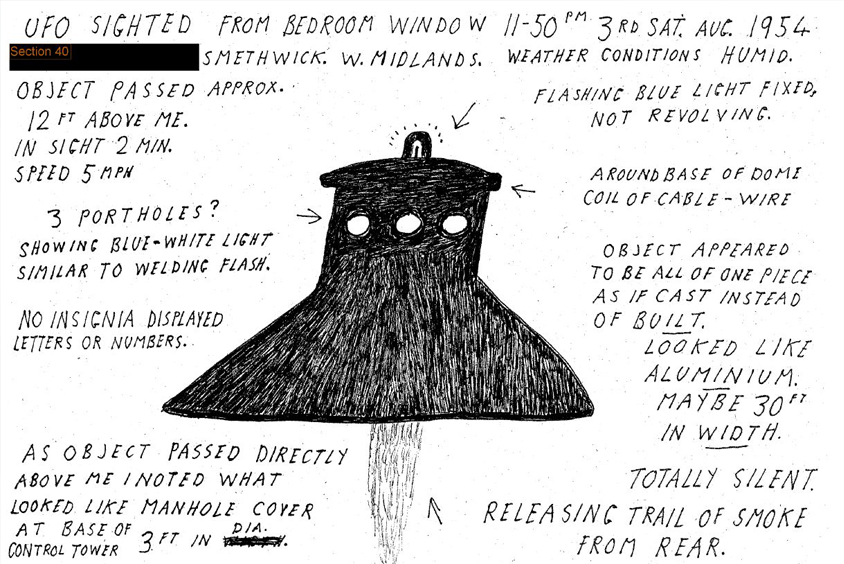 UFO SIGHTED FROM BEDROOM WINDOW 11-50 PM 3RD SAT. AUG. 1954
Section 40
SMETHWICK. W. MIDLANDS. WEATHER CONDITIONS HUMID.
OBJECT PASSED APPROX.
12 FT ABOVE ME.
IN SIGHT 2 MIN.
SPEED 5 MPH
FLASHING BLUE LIGHT FIXED,
NOT REVOLVING.
AROUND BASE OF DOME
COIL OF CABLE-WIRE
3 PORTHOLES?
SHOWING BLUE-WHITE LIGHT
SIMILAR TO WELDING FLASH.
NO INSIGNIA DISPLAYED
LETTERS OR NUMBERS.
OBJECT APPEARED
TO BE ALL OF ONE PIECE
AS IF CAST INSTEAD
OF BUILT.
LOOKED LIKE
ALUMINIUM.
MAYBE 30 FT
IN WIDTH.
AS OBJECT PASSED DIRECTLY
ABOVE ME I NOTED WHAT
LOOKED LIKE MANHOLE COVER
AT BASE OF
CONTROL TOWER 3 FT IN DIA.
TOTALLY SILENT.
RELEASING TRAIL OF SMOKE
FROM REAR.